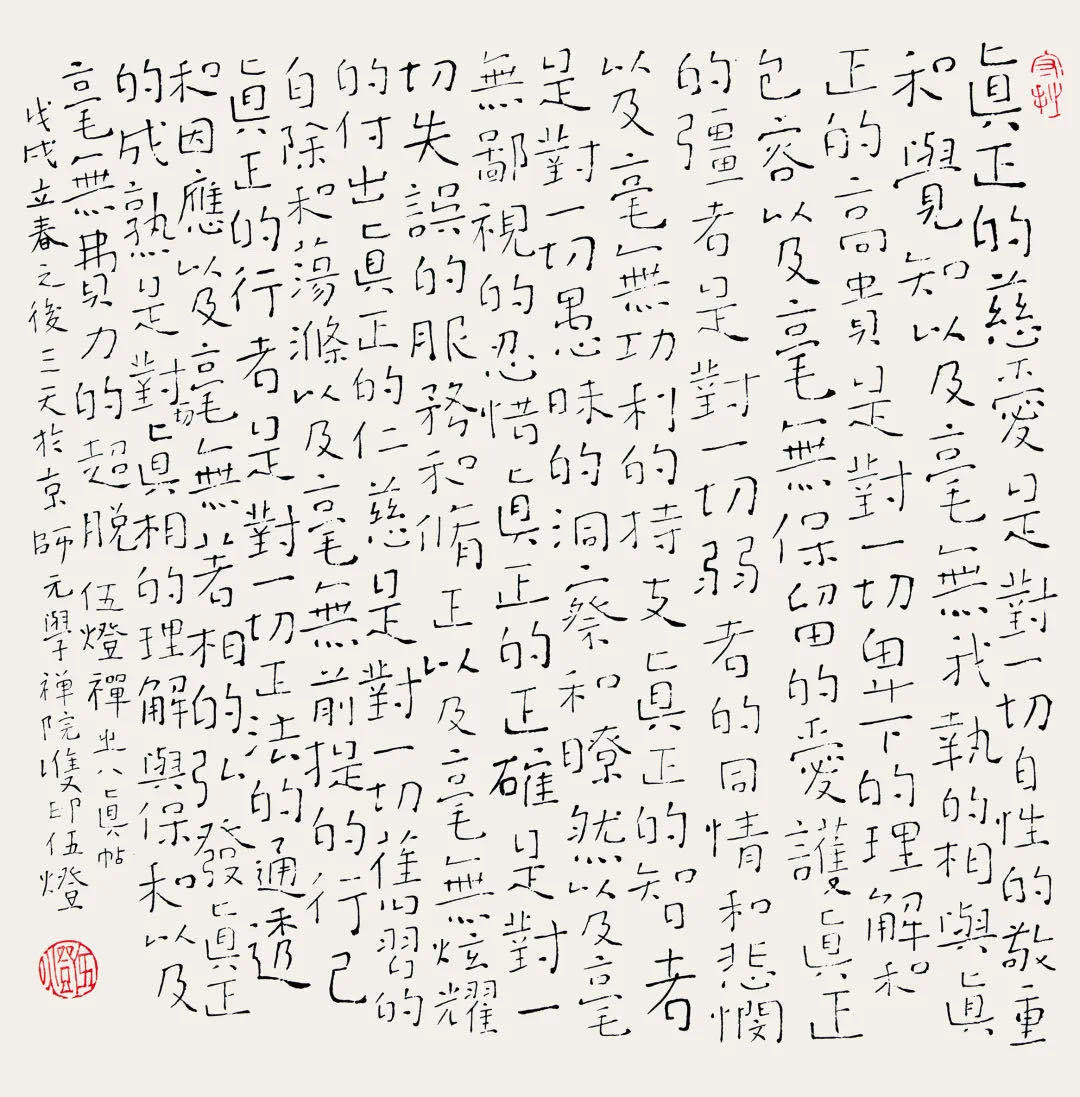 眞正的慈愛是對一切自性的敬重
和覺知以及毫無我執的相與眞
正的高貴是對一切卑下的理解和
包容以及毫無保留的愛護眞正
的彊者是對一切弱者的同情和悲憫
以及毫無功利的持支眞正的智者
是對一切愚昧的洞察和瞭然以及毫
無鄙視的忍惜眞正的正確是對一
切失誤的服務和脩正以及毫無炫耀
的付出眞正的仁慈是對一切習的
自除和蕩滌以及毫無前提的行己
眞正的行者是對一切正法的通透
和因應以及毫無著相的弘發眞正
的成熟是對切眞相的理解與保和以及
毫無費力的超脫 伍燈禪㞢八眞帖
戊戌立春之後三天於京師元學禅院雙印伍燈
伍燈